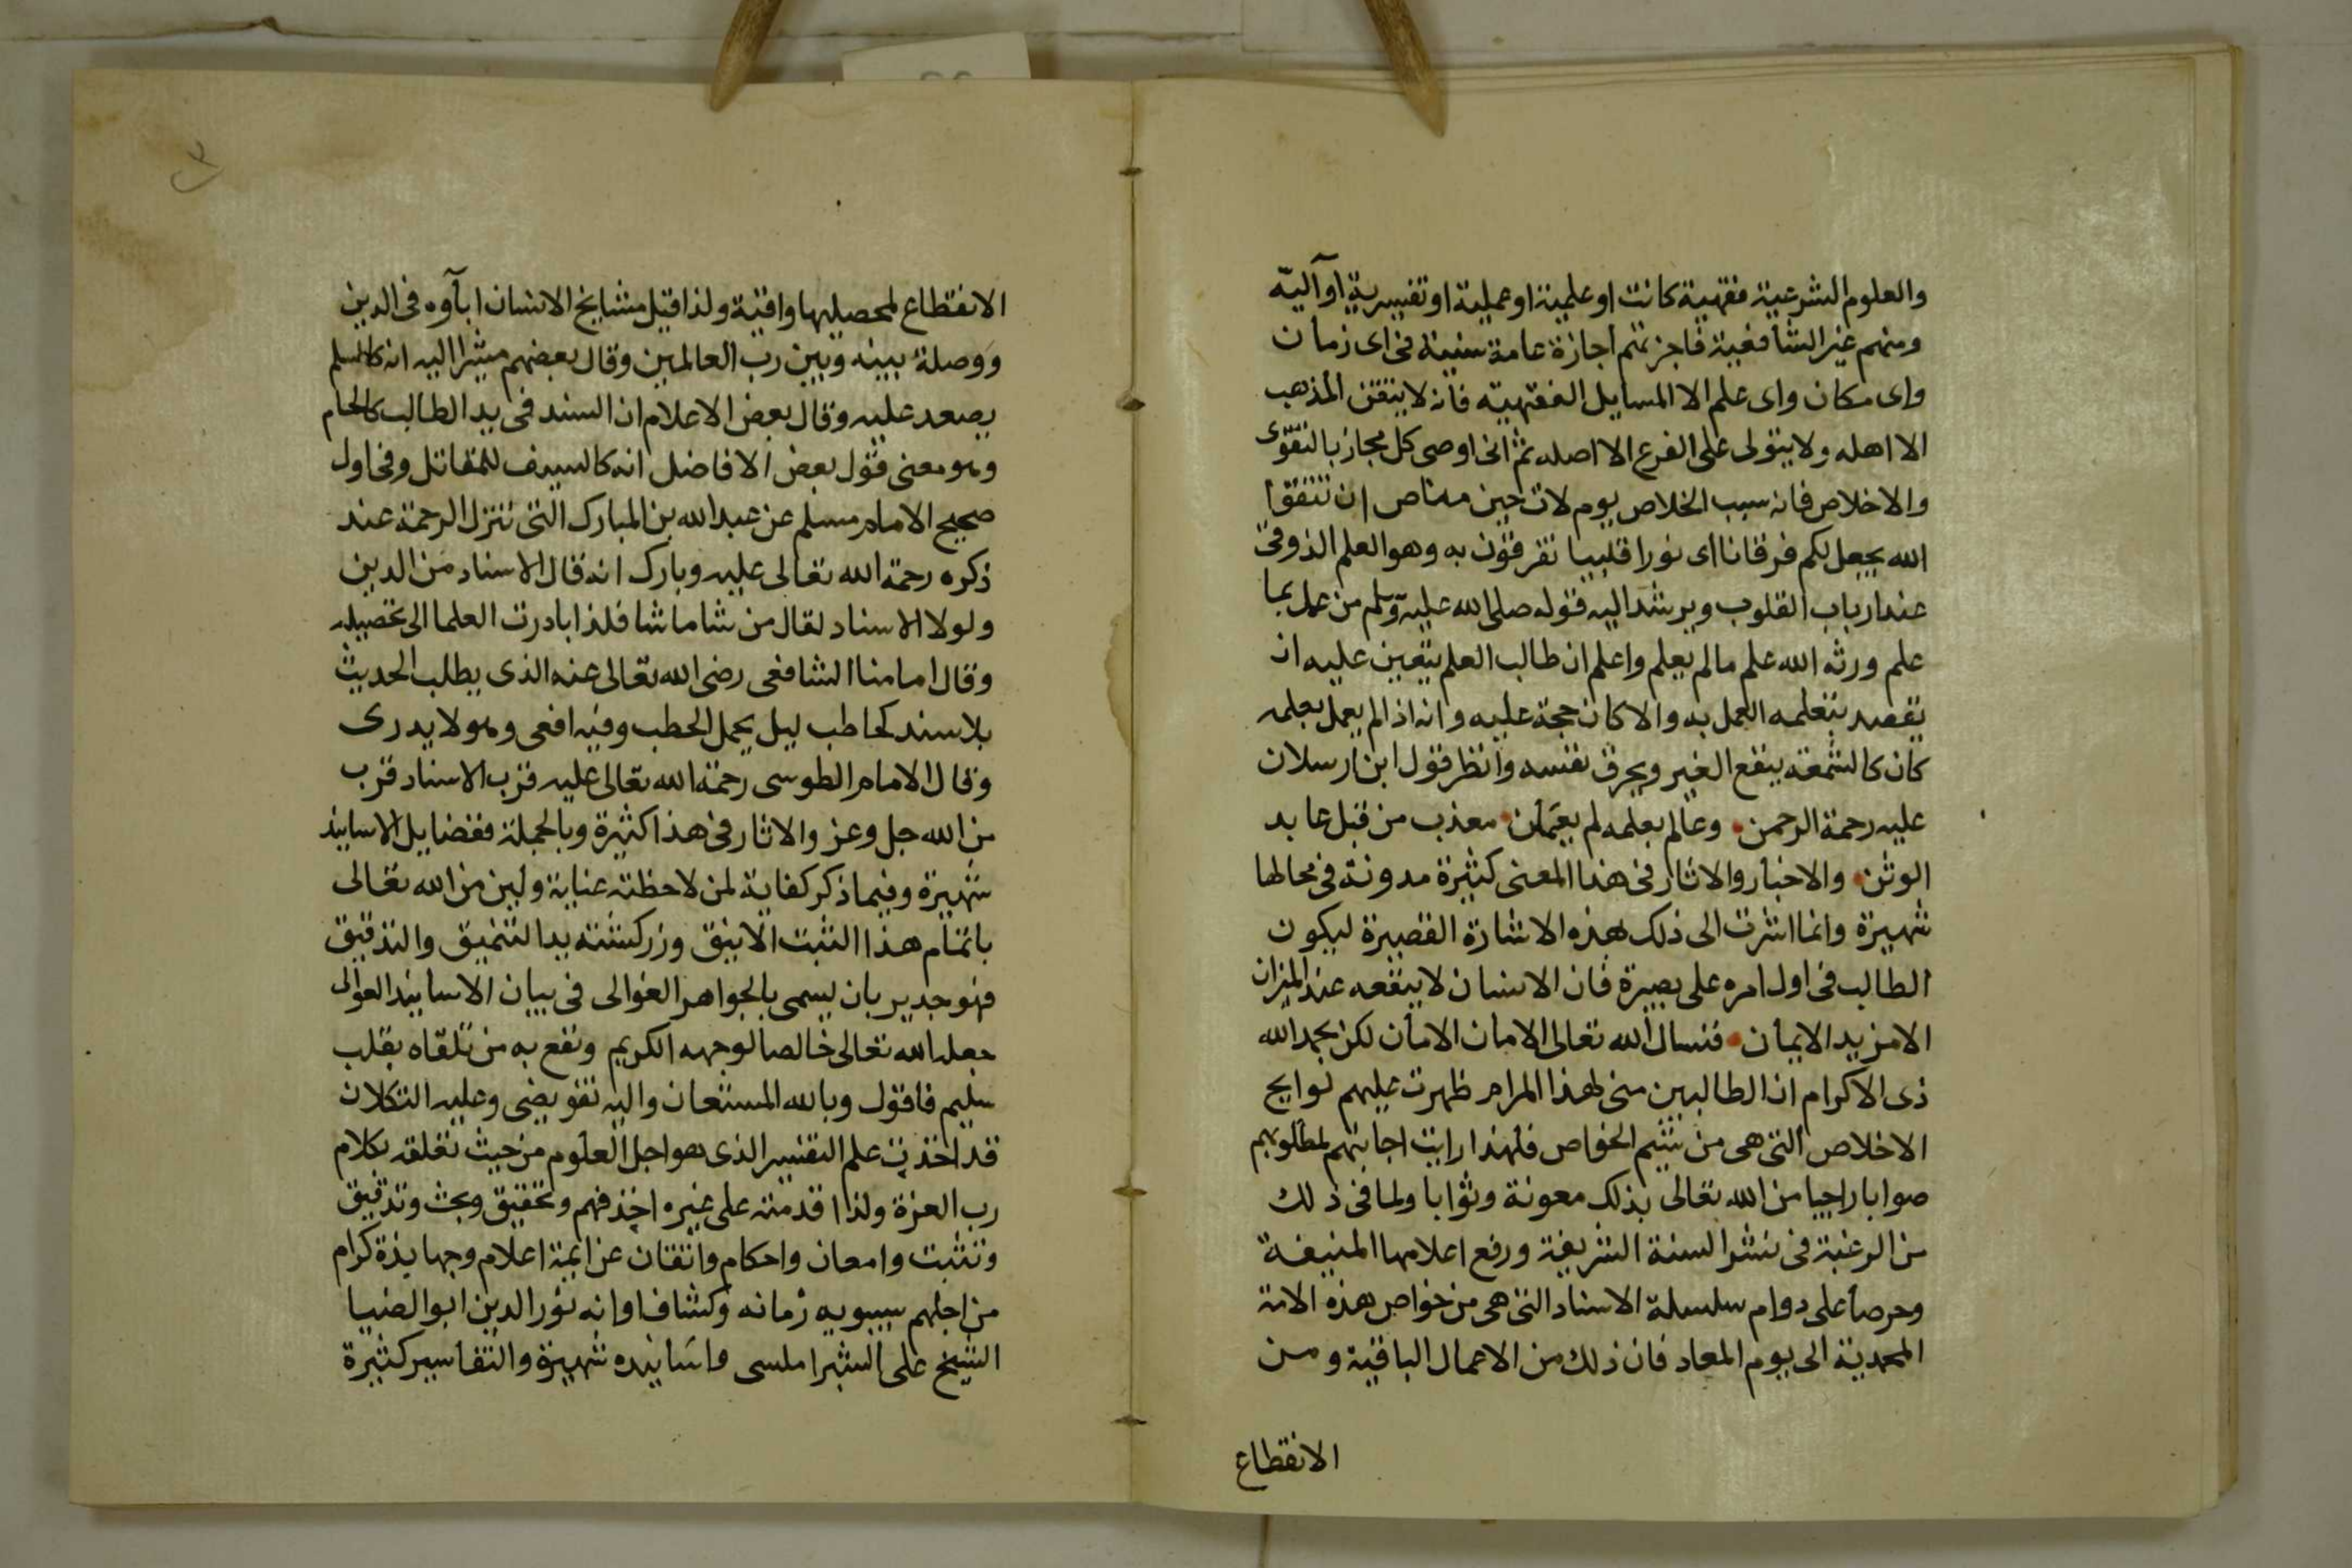 والعلوم الشرعية فقهية كانت او علمية او عملية او تفسيرية او آليّة
ومنهم غير الشافعية فاجزتهم اجازة عامة سنية فى اى زمان
واى مكان واى علم الا المسايل الفقهية فانه لا يتقن المذهب
الا اهله ولا يتولى على الفرع الا اصله ثم انى اوصى كل مجاز بالتقوى
والاخلاص فانه سبب الخلاص يوم لات حين مناص ان تتقوا
الله يجعل لكم فرقانا اى نورا قلبيا تفرقون به وهو العلم الذوقى
عند ارباب القلوب ويرشد اليه قوله صلى الله عليه وسلم من عمل بما
علم ورثه الله علم مالم يعلم واعلم ان طالب العلم يتعين عليه ان
يقصد بتعلمه العمل به والا كان حجة عليه وانه اذا لم يعمل بعلمه
كان كالشمعة ينفع الغير ويحرق نفسه وانظر قول ابن ارسلان
عليه رحمة الرحمن وعالم بعلمه لم يعملن معذب من قبل عابد
الوثن والاخبار والاثار فى هذا المعنى كثيرة مدونة فى محالها
شهيرة وانما اشرت الى ذلك بهذه الاشارة القصيرة ليكون
الطالب فى اول امره على بصيرة فان الانسان لا ينفعه عند الميزان
الا مزيد الايمان فنسال الله تعالى الامان الامان لكن بحمد الله
ذى الاكرام ان الطالبين منى لهذا المرام ظهرت عليهم لوايح
الاخلاص التى هى من شيم الخواص فلهذا رايت اجابتهم لمطلوبهم
صوابا راجيا من الله تعالى بذلك معونة وثوابا ولما فى ذلك
من الرغبة فى نشر السنة الشريفة ورفع اعلامها المنيفة
وحرصا على دوام سلسلة الاسناد التى هى من خواص هذه الامة
المحمدية الى يوم المعاد فان ذلك من الاعمال الباقية ومن
الانقطاع
٣
الانقطاع لمحصليها واقية ولذا قيل مشايخ الانسان اباؤه فى الدين
ووصلة بينه وبين رب العالمين وقال بعضهم مشيرا اليه انه كالسلم
يصعد عليه وقال بعض الاعلام ان السند فى يد الطالب كالحام
وهو معنى قول بعض الافاضل انه كالسيف للمقاتل وفى اول
صحيح الامام مسلم عن عبد الله بن المبارك التى تنزل الرحمة عند
ذكره رحمة الله تعالى عليه وبارك انه قال الاسناد من الدين
ولولا الاسناد لقال من شا ما شا فلذا بادرت العلما الى تحصيله
وقال امامنا الشافعى رضى الله تعالى عنه الذى يطلب الحديث
بلا سند كحاطب ليل يحمل الحطب وفيه افعى وهو لا يدرى
وقال الامام الطوسى رحمة الله تعالى عليه قرب الاسناد قرب
من الله جل وعز والاثار فى هذا كثيرة وبالجملة ففضايل الاسانيد
شهيرة وفيما ذكر كفاية لمن لاحظته عناية ولين من الله تعالى
باتمام هذا الثبت الانيق وزركشته يد التنميق والتدقيق
فهو جدير بان يسمى بالجواهر الغوالى فى بيان الاسانيد العوالى
جعله الله تعالى خالصا لوجهه الكريم ونفع به من تلقاه بقلب
سليم فاقول وبالله المستعان واليه تفويضى وعليه التكلان
قد اخذت علم التفسير الذى هو اجل العلوم من حيث تعلقه بكلام
رب العزة ولذا قدمته على غيره اخذ فهم وتحقيق وبحث وتدقيق
وتثبت وامعان واحكام واتقان عن ايمة اعلام وجهابذة كرام
من اجلهم سيبويه زمانه وكشاف اوانه نور الدين ابو الضيا
الشيخ على الشبراملسى واسانيده شهيرة والتفاسير كثيرة